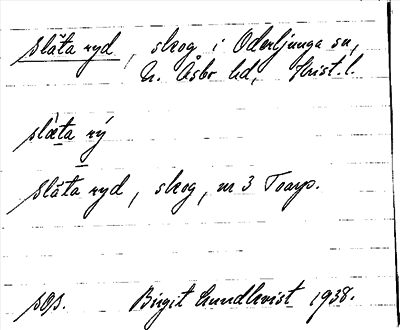 Slätaryd, skog i Oderljunga sn,
N. Åsbo hd, Krist. l.
slæ̀ta rý
Släta ryd, skog, nr 3 Toarp.
sas. Birgit Lundkvist 1938.